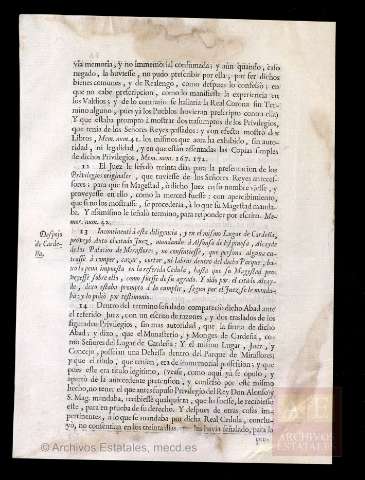 via memoria, y no immemorial confumada; y aùn quando, caso
negado, la huviesse, no pudo prescribir por ella, por ser dichos
bienes comunes, y de Realengo, como despues lo confessò; en
que no cabe prescripcion, como lo manifiesta la experiencia en
los Valdios; y de lo contrario se hallaria la Real Corona sin Ter-
mino alguno, pues ya los Pueblos huvieran prescripto contra ella:
Y que estaba prompto à mostrar dos trasumptos de los Privilegios,
que tenia de los Señores Reyes passados; y con efecto mostrò dos
Libros, Mem. num. 42. los mismos que aora ha exhibido, sin auto-
ridad, ni legalidad, y en que estàn insertadas las Copias simples
de dichos Privilegios, Mem. num. 167. 172.
12 El Juez le señalò treinta dias para la presentacion de los
Privilegios originales, que tuviesse de los Señores Reyes anteces-
sores: para que su Magestad, ò dicho Juez en su nombre viesse, y
proveyesse en ello, como la merced fuesse: con apercibimiento,
que si no los mostrasse, se procederia, à lo que su Magestad manda-
ba. Y assimismo le señalò termino, para responder por escrito. Me-
mor. num. 42.
Despojo
de Carde-
ña.
13 Incontinenti à esta diligencia, y en el mismo Lugar de Cardeña,
proveyò Auto el citado Juez, mandando à Alfonso de Espinosa, Alcayde
del dicho Palacio de Miraflores, no consintiesse, que persona alguna en-
trasse à romper, cazar, cortar, ni labrar dentro del dicho Parque, ba-
xo la pena impuesta en la referida Cedula, hasta que su Magestad pro-
veyesse sobre ello, como fuesse de su agrado. Y oido por el citado Alcay-
de, dixo estaba prompto à lo cumplir, segun por el Juez se le manda-
ba; y lo pidiò por testimonio.
14 Dentro del termino señalado compareciò dicho Abad ante
el referido Juez, con un escrito de razones, y dos traslados de los
figurados Privilegios, sin mas autoridad, que la firma de dicho
Abad; y dixo, que el Monasterio, y Monges de Cardeña, co-
mo Señores del Lugar de Cardeña: Y el mismo Lugar, Juez, y
Concejo, posseian una Dehessa dentro del Parque de Miraflores;
y que el titulo, que tenian, era de immemorial possession; y que
pues este era titulo legitimo, (vease, como aqui ya se opuso, y
apartò de la antecedente pretension, y confessò por este mismo
hecho, no tener el que antes supuso Privilegio del Rey Don Alonso) y
S. Mag. mandaba, recibiesse qualquiera, que lo fuesse, le recibiesse
este, para en prueba de su derecho. Y despues de otras cosas im-
pertinentes, à lo que se mandaba por dicha Real Cedula, conclu-
yò, no consentia en los treinta dias que havia señalado, para la
© Archivos Estatales, mecd.es
ARCHIVOS
ESTATALES